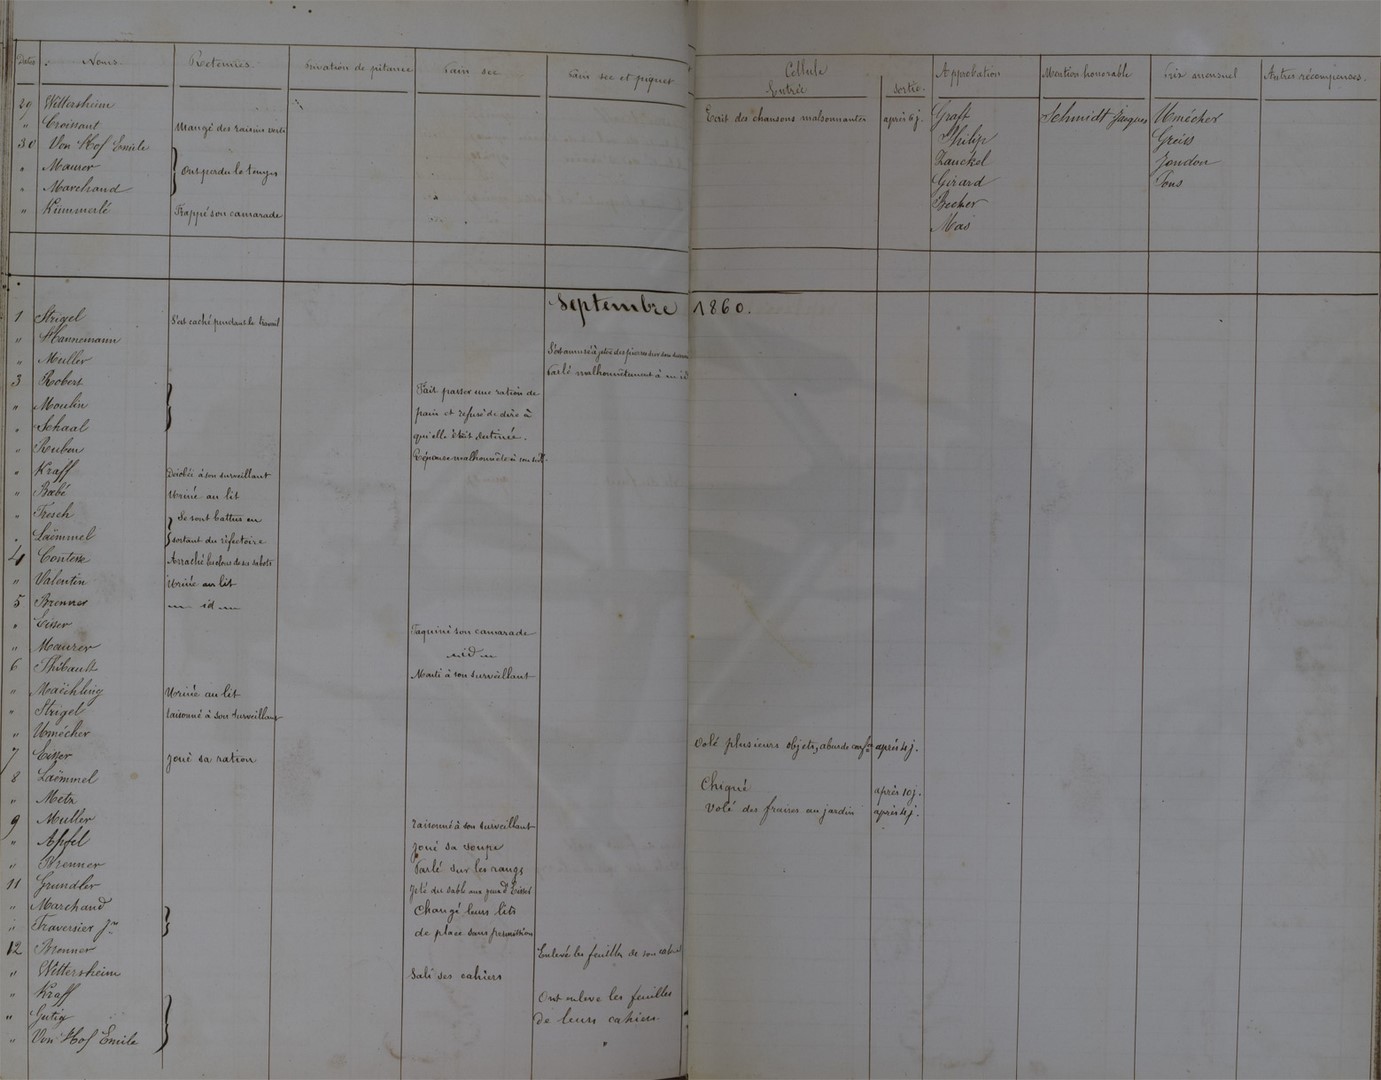 Dates Noms Retenues Privation de pitance Pain sec Pain sec et piquet Cellule Approbation Mention honorable Prix mensuel Autres récompenses.
Entrée Sortie.
29 Wittersheim Ecrit des chansons malsonnantes après 6 j. Graff Schmidt Jacques Umécher
" Croissant Mangé des raisins verts Philip
30 Von Hof Emile Zanckel Jendon
" Maurer Ont perdu le temps Girard Pons
" Marchand Becker
" Kimmerlé Frappé son camarade
Septembre 1860.
1 Strigel S'est caché pendant le travail
" Hannemann S'est amusé à jeter des pierres sur son
" Muller Parlé malhonnêtement à un id
3 Robert Fait passer une ration de
" Moulin pain et refusé de dire à
" Schaal qu'elle était destinée.
" Reuben Réponse malhonnête à son surv.
" Kraff Désobéi à son surveillant
" Babé Uriné au lit
" Fresch Se sont battus en
" Laëmmel sortant du réfectoire
4 Contesse Arraché les clous de ses sabots
" Valentin Uriné au lit
5 Brenner — id —
" Eisser Taquiné son camarade
" Maurer — id —
6 Thibault Menti à son surveillant
" Maëchling Uriné au lit
" Strigel raisonné à son surveillant
" Umécher Volé plusieurs objets, abus de conf. après 4 j.
7 Eisser Joué sa ration
8 Laëmmel Chiqué après 10 j.
" Metz Volé des fraises au jardin après 4 j.
9 Muller raisonné à son surveillant
" Apfel Joué sa soupe
" Brenner Parlé sur les rangs
11 Grundler Jeté du sable aux yeux d'Eisser
" Marchand Changé leurs lits
" Traversier Jne de place sans permission
12 Brenner Enlevé les feuilles de son cahier
" Wittersheim Sali ses cahiers
" Kraff Ont enlevé les feuilles
" Gutig de leurs cahiers
" Von Hof Emile "